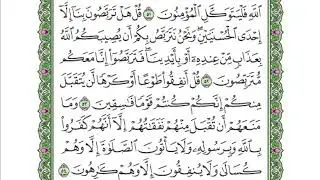 ٱللَّهِ فَلْيَتَوَكَّلِ ٱلْمُؤْمِنُونَ ٥١ قُلْ هَلْ تَرَبَّصُونَ بِنَآ إِلَّآ
إِحْدَى ٱلْحُسْنَيَيْنِ وَنَحْنُ نَتَرَبَّصُ بِكُمْ أَن يُصِيبَكُمُ ٱللَّهُ
بِعَذَابٍ مِّنْ عِندِهِۦٓ أَوْ بِأَيْدِينَا فَتَرَبَّصُوٓا۟ إِنَّا مَعَكُم
مُّتَرَبِّصُونَ ٥٢ قُلْ أَنفِقُوا۟ طَوْعًا أَوْ كَرْهًا لَّن يُتَقَبَّلَ
مِنكُمْ إِنَّكُمْ كُنتُمْ قَوْمًا فَـٰسِقِينَ ٥٣ وَمَا
مَنَعَهُمْ أَن تُقْبَلَ مِنْهُمْ نَفَقَـٰتُهُمْ إِلَّآ أَنَّهُمْ كَفَرُوا۟
بِٱللَّهِ وَبِرَسُولِهِۦ وَلَا يَأْتُونَ ٱلصَّلَوٰةَ إِلَّا وَهُمْ
كُسَالَىٰ وَلَا يُنفِقُونَ إِلَّا وَهُمْ كَـٰرِهُونَ ٥٤